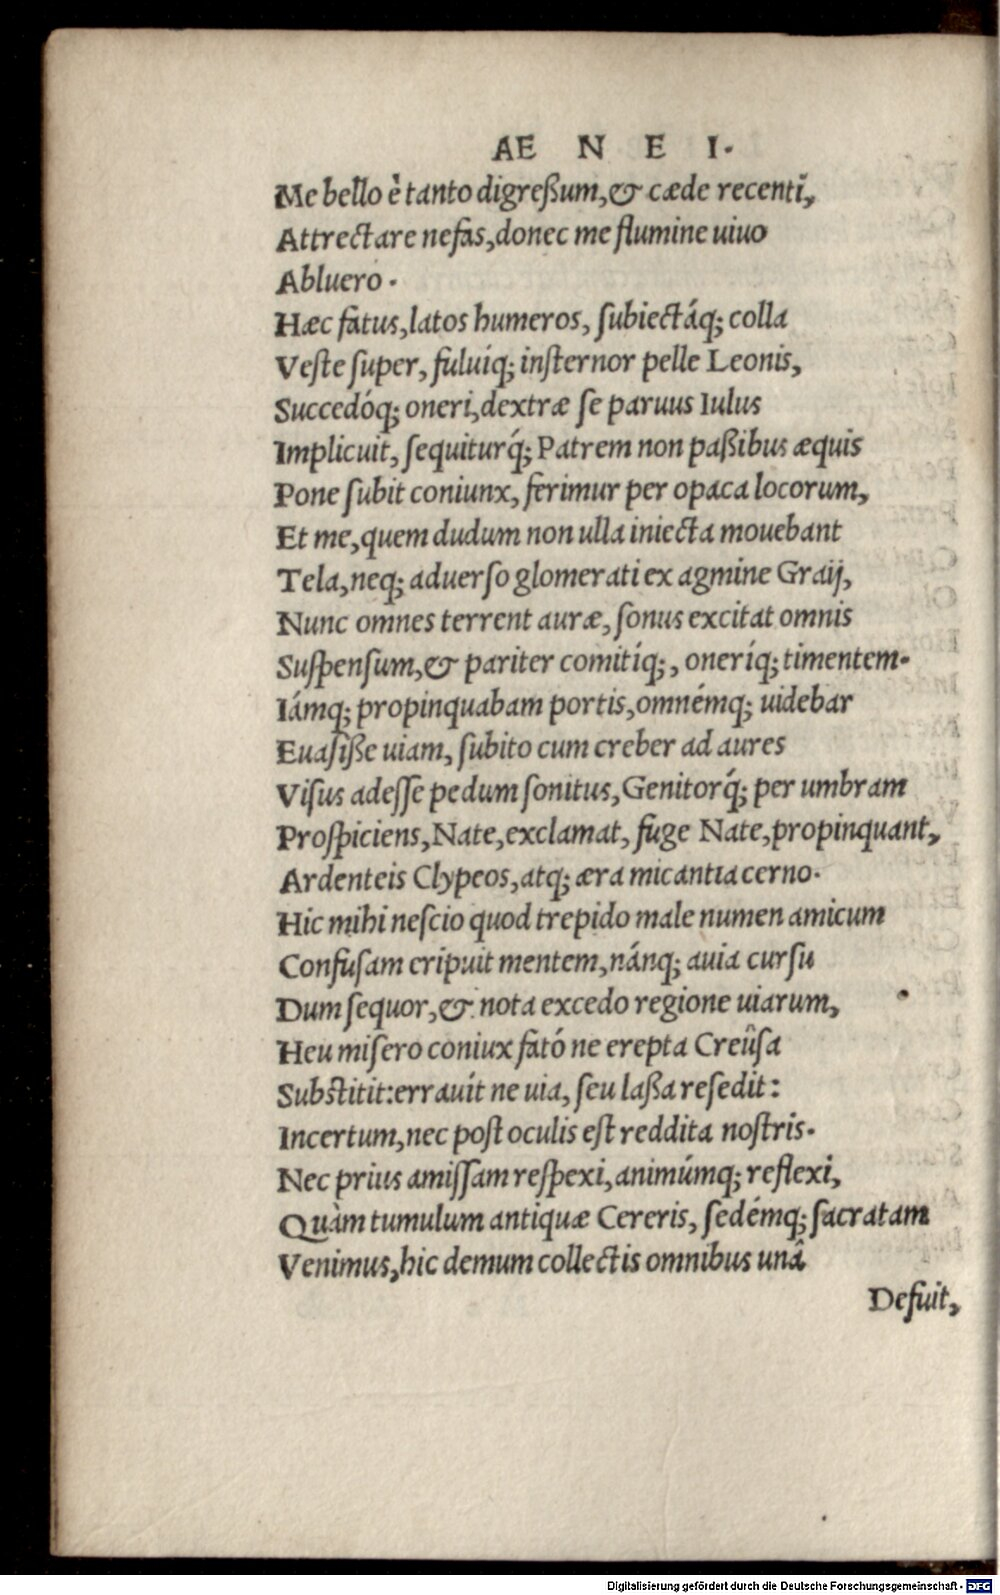 AE N E I.
Me bello è tanto digreßum,& cæde recenti,
Attrectare nefas,donec me flumine uiuo
Abluero.
Hæc fatus,latos humeros, ſubiectáq; colla
Veſte ſuper, fuluíq; inſternor pelle Leonis,
Succedóq; oneri,dextræ ſe paruus Iulus
Implicuit, ſequiturq́; Patrem non paßibus æquis
Pone ſubit coniunx, ferimur per opaca locorum,
Et me,quem dudum non ulla iniecta mouebant
Tela,neq; aduerſo glomerati ex agmine Graij,
Nunc omnes terrent auræ, ſonus excitat omnis
Suſpenſum,& pariter comitíq;, oneríq; timentem.
Iámq; propinquabam portis,omnémq; uidebar
Euaſiße uiam, ſubito cum creber ad aures
Viſus adeſſe pedum ſonitus,Genitorq́; per umbram
Proſpiciens,Nate,exclamat, fuge Nate,propinquant,
Ardenteis Clypeos,atq; æra micantia cerno.
Hic mihi neſcio quod trepido male numen amicum
Confuſam eripuit mentem,nánq; auia curſu
Dum ſequor,& nota excedo regione uiarum,
Heu miſero coniux fató ne erepta Creûſa
Subſtitit:erráuit ne uia, ſeu laßa reſedit:
Incertum,nec poſt oculis eſt reddita noſtris.
Nec prius amiſſam reſpexi,animúmq; reflexi,
Quàm tumulum antiquæ Cereris, ſedémq; ſacratam
Venimus,hic demum collectis omnibus unâ
Defuit,
Digitalisierung gefördert durch die Deutsche Forschungsgemeinschaft - DFG